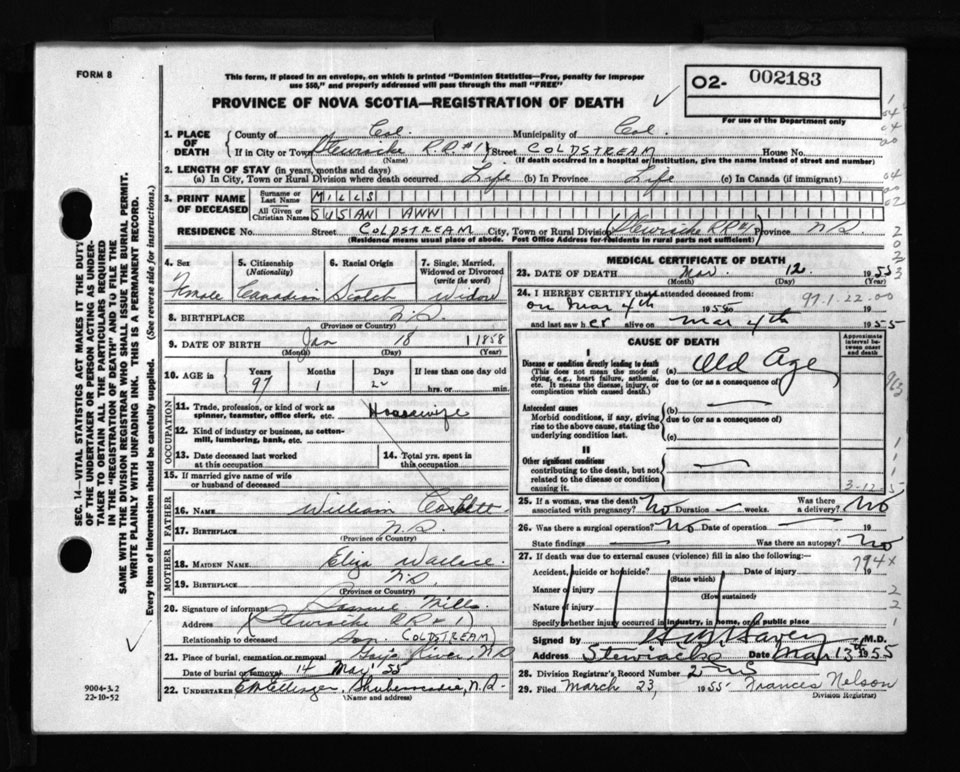 FORM 8
This form, if placed in an envelope, on which is printed "Dominion Statistics—Free, penalty for improper
use $50," and properly addressed will pass through the mail "FREE"
PROVINCE OF NOVA SCOTIA—REGISTRATION OF DEATH
O2- 002183
For use of the Department only
SEC. 14—VITAL STATISTICS ACT MAKES IT THE DUTY
OF THE UNDERTAKER OR PERSON ACTING AS UNDER-
TAKER TO OBTAIN ALL THE PARTICULARS REQUIRED
IN THE "REGISTRATION OF DEATH" AND TO FILE THE
SAME WITH THE DIVISION REGISTRAR WHO SHALL ISSUE THE BURIAL PERMIT.
WRITE PLAINLY WITH UNFADING INK. THIS IS A PERMANENT RECORD.
Every item of information should be carefully supplied. (See reverse side for instructions.)
1. PLACE OF DEATH County of Col. Municipality of Col.
If in City or Town (Stewiacke R.R. #1) Street COLDSTREAM House No.
(Name) (If death occurred in a hospital or institution, give the name instead of street and number)
2. LENGTH OF STAY (in years, months and days)
(a) In City, Town or Rural Division where death occurred Life (b) In Province Life (c) In Canada (if immigrant)
3. PRINT NAME OF DECEASED Surname or Last Name MILLS
All Given or Christian Names SUSAN ANN
RESIDENCE No. Street COLDSTREAM City, Town or Rural Division (Stewiacke RR #1) Province N.S.
(Residence means usual place of abode. Post Office Address for residents in rural parts not sufficient)
4. Sex Female
5. Citizenship (Nationality) Canadian
6. Racial Origin Scotch
7. Single, Married, Widowed or Divorced (write the word) Widow
8. BIRTHPLACE N.S.
(Province or Country)
9. DATE OF BIRTH Jan 18 1858
(Month) (Day) (Year)
10. AGE in Years Months Days If less than one day old
97 1 hrs. or min.
OCCUPATION
11. Trade, profession, or kind of work as spinner, teamster, office clerk, etc. Housewife
12. Kind of industry or business, as cotton-mill, lumbering, bank, etc.
13. Date deceased last worked at this occupation
14. Total yrs. spent in this occupation
15. If married give name of wife or husband of deceased
FATHER
16. NAME William Corbett
17. BIRTHPLACE N.S.
(Province or Country)
MOTHER
18. MAIDEN NAME Eliza Wallace
19. BIRTHPLACE N.S.
(Province or Country)
20. Signature of informant Samuel Mills
Address (Stewiacke RR #1)
Relationship to deceased Son. COLDSTREAM)
21. Place of burial, cremation or removal Gay's River, N.S.
Date of burial or removal 14 Mar 55
22. UNDERTAKER Shubenacadie, N.S.
(Name and address)
9004-3.2
22-10-52
MEDICAL CERTIFICATE OF DEATH
23. DATE OF DEATH Mar. 12. 1955
(Month) (Day) (Year)
24. I HEREBY CERTIFY that I attended deceased from 97.1.22.00
on Mar 4th 1955 to
and last saw her alive on Mar 4th 1955
CAUSE OF DEATH
Approximate interval between onset and death
I
Disease or condition directly leading to death
(This does not mean the mode of dying, e.g., heart failure, asthenia, etc. It means the disease, injury, or complication which caused death.)
(a) Old Age
due to (or as a consequence of)
Antecedent causes
Morbid conditions, if any, giving rise to the above cause, stating the underlying condition last.
(b) —
due to (or as a consequence of)
(c)
II
Other significant conditions
contributing to the death, but not related to the disease or condition causing it.
—
3-12-5
25. If a woman, was the death associated with pregnancy? No Duration — weeks. Was there a delivery? No
26. Was there a surgical operation? No Date of operation — 19
State findings — Was there an autopsy? No
27. If death was due to external causes (violence) fill in also the following:—
794x
Accident, suicide or homicide? Date of injury 19
(State which)
Manner of injury
(How sustained)
Nature of injury
Specify whether injury occurred in industry, in home, or in public place
Signed by M.D.
Address Stewiacke Date Mar 13th 1955
28. Division Registrar's Record Number
29. Filed March 23, 1955 Frances Nelson
Division Registrar